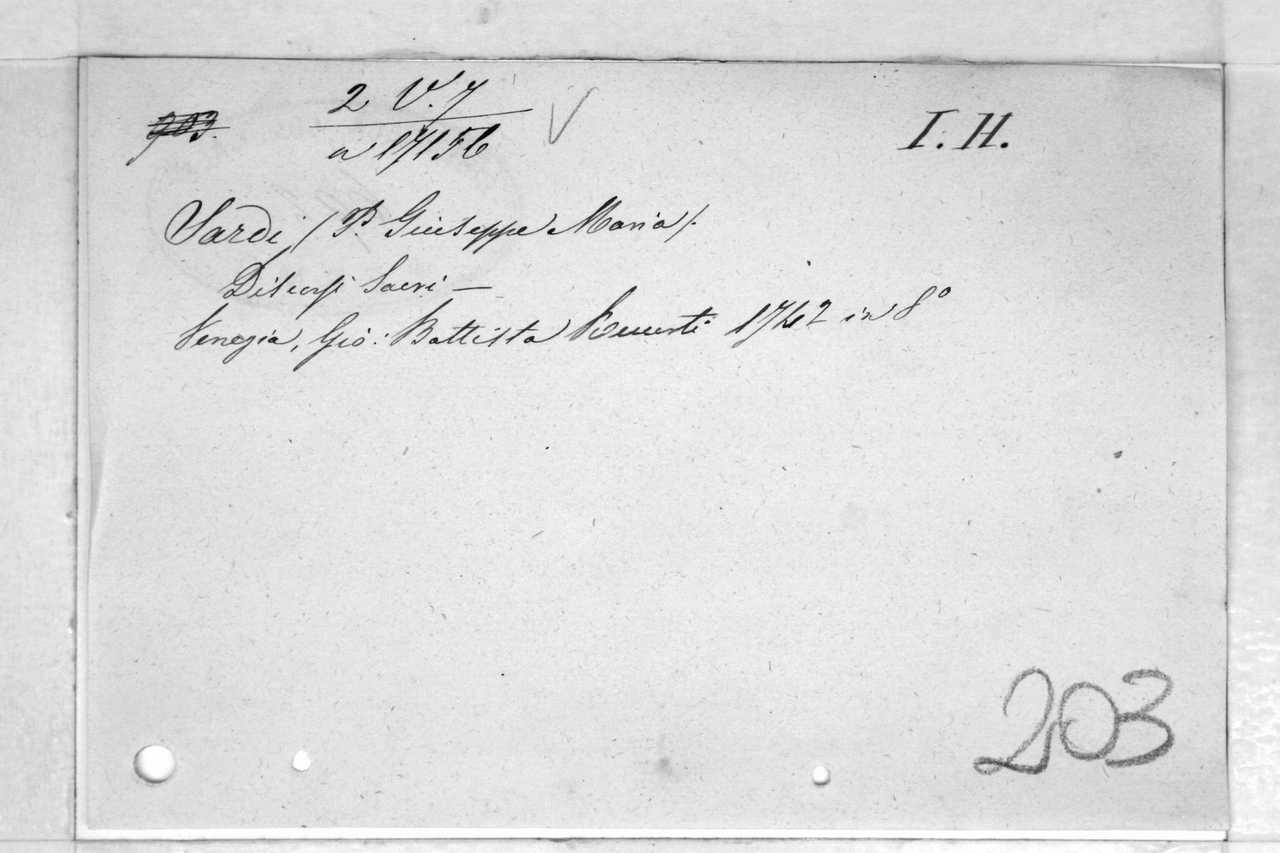 203.
2 V. 7
a 17156
I. H.
Sardi (P. Giuseppe Maria).
Discorsi Sacri —
Venezia, Gio: Battista Recurti 1742 in 8º
203